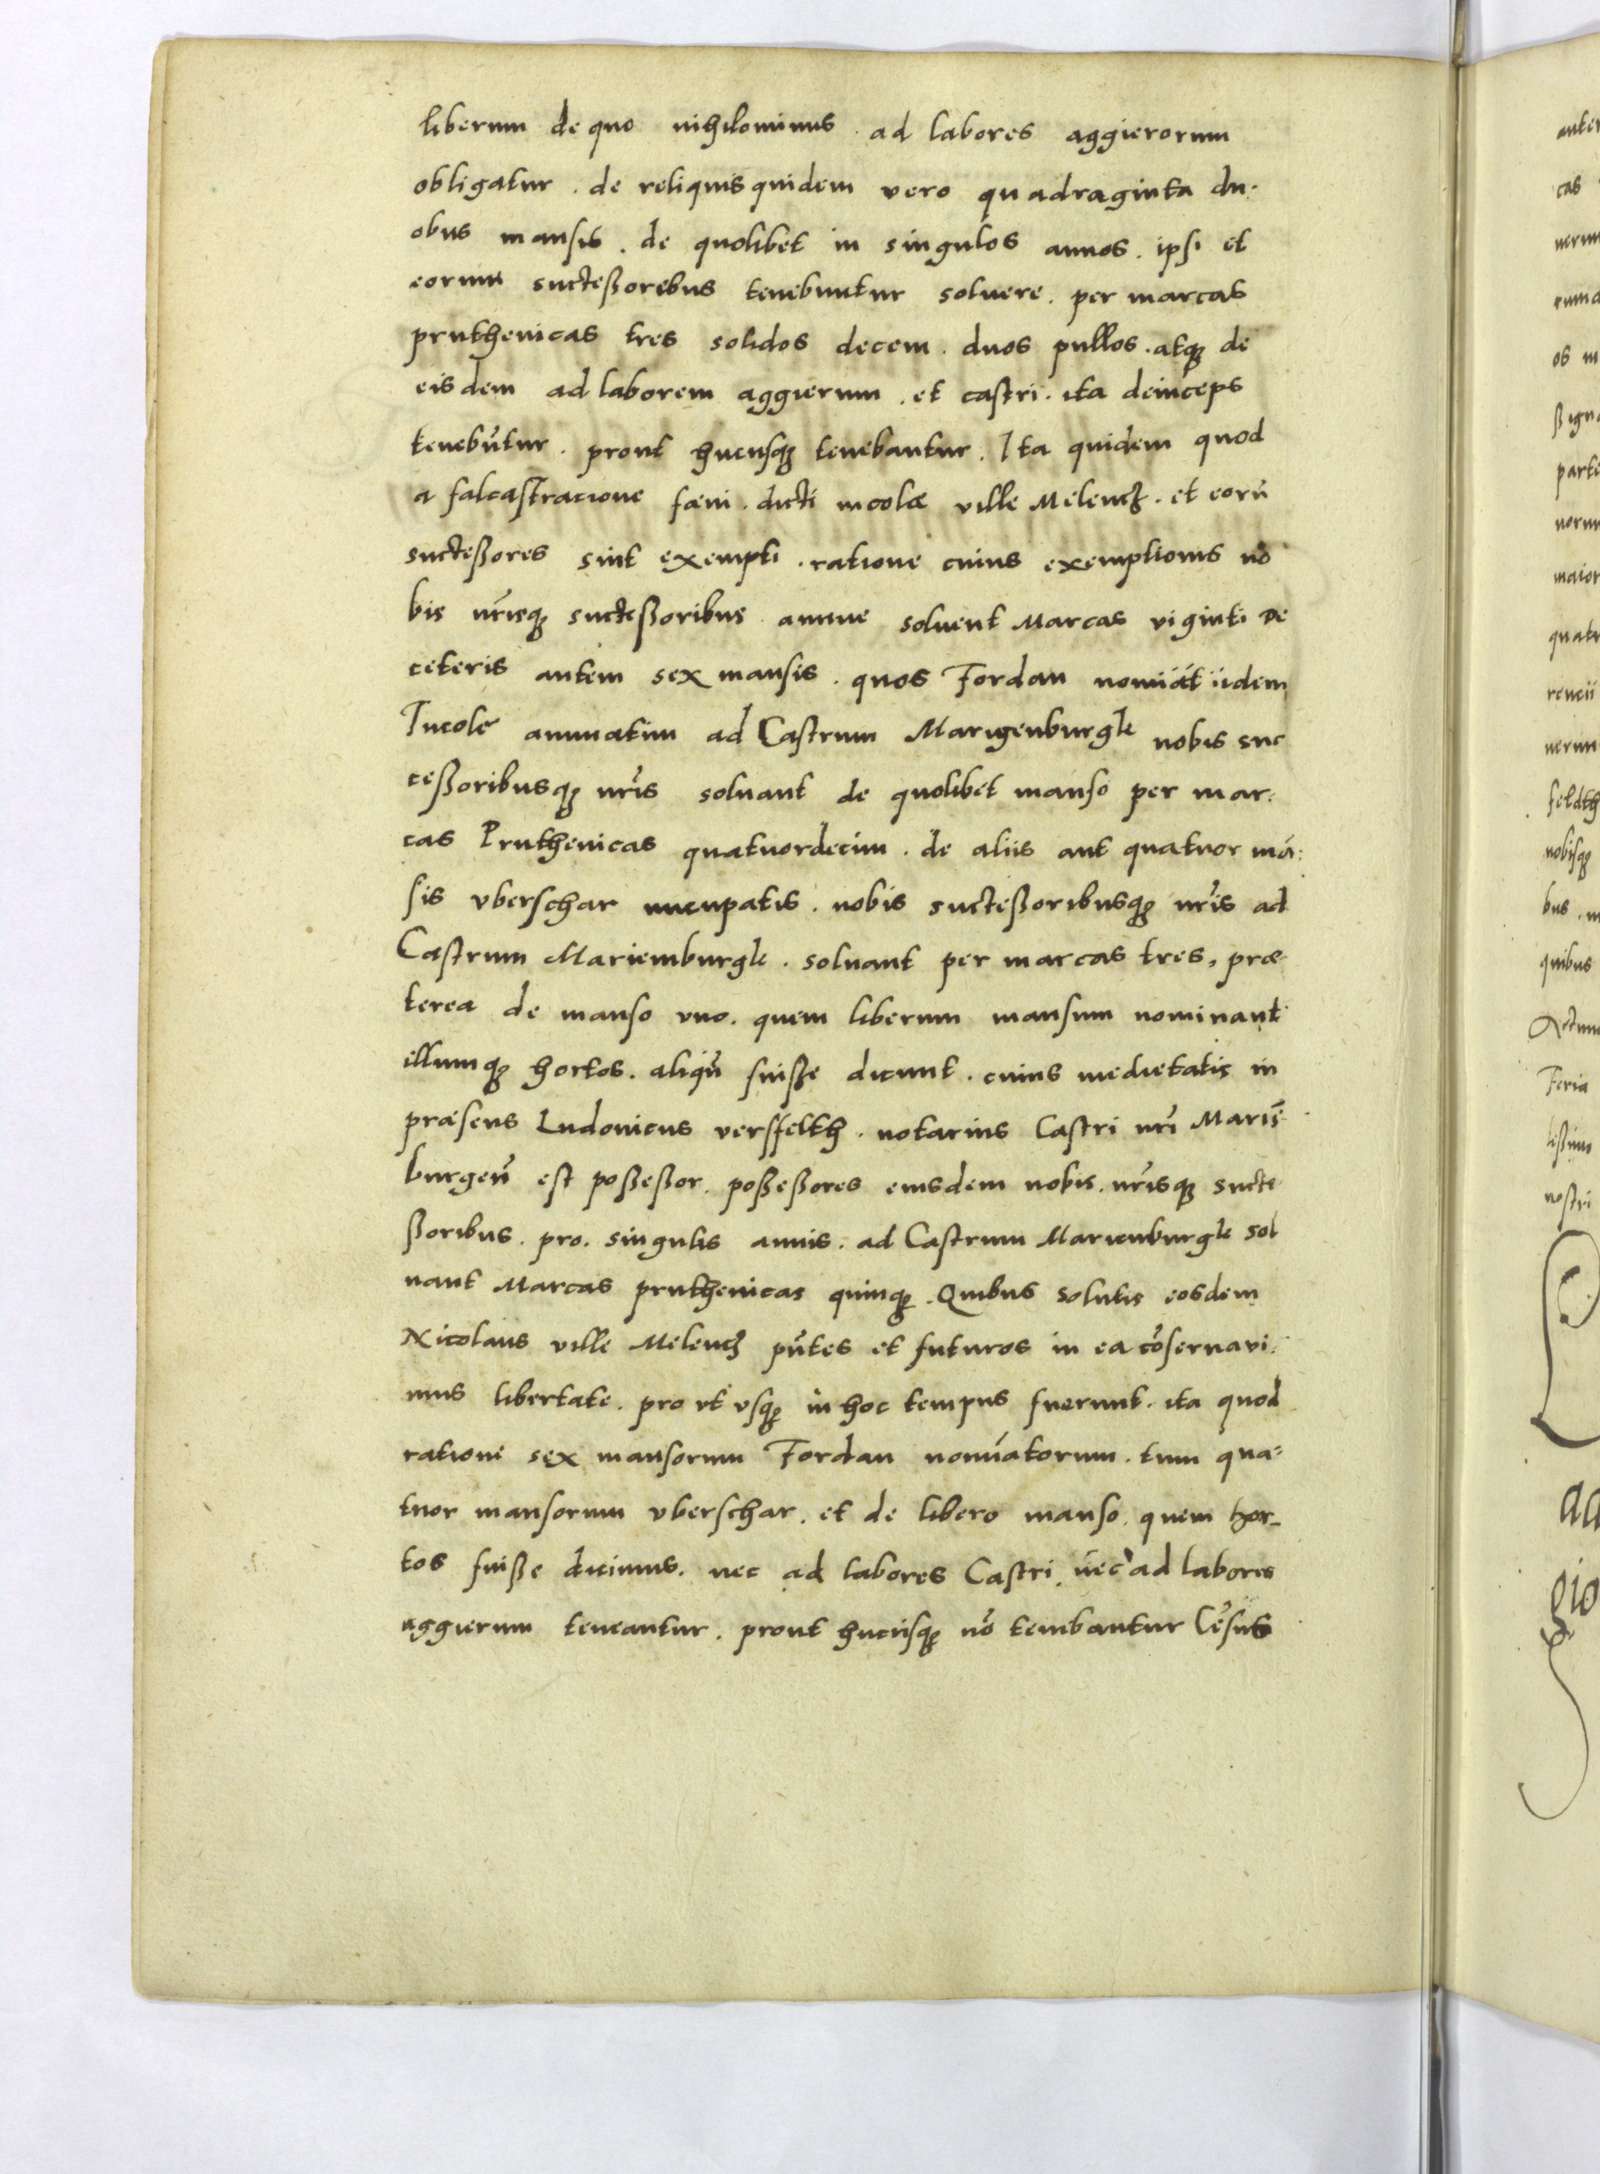 liberum de quo nihilominus . ad labores aggierorum
obligatur . de reliquis quidem vero quadraginta du-
obus mansis . de quolibet in singulos annos . ipsi et
eorum sucteßoribus tenebuntur soluere . per marcas
pruthenicas tres solidos decem . duos pullos . atqꝫ de
eisdem ad laborem aggierum . et castri . ita deinceps
tenebũtur . prout hucusqꝫ tenebantur . Ita quidem quod
a falcastracione fœni . dicti incolæ ville Melencz . et eorũ
sucteßores sint exempti . ratione cuius exemptionis no
bis nr̃isqꝫ sucteßoribus annue soluent Marcas viginti De
ceteris autem sex mansis . quos Fordan nomiãt iidem
Incole annuatim ad Castrum Marigenburgk nobis suc
ceßoribusqꝫ nr̃is soluant de quolibet manso per mar-
cas Pruthenicas quatuordecim . de aliis aut quatuor mã-
sis vberschar nucupatis . nobis sucteßoribusqꝫ nr̃is ad
Castrum Mariemburgk . soluant per marcas tres, præ
terea de manso vno . quem liberum mansum nominant
illumqꝫ hortos . aliqñ fuiße dicunt . cuius medietatis in
præsens Ludouicus versfelth . notarius Castri nr̃i Mariẽ-
burgeñ est poßeßor . poßeßores eiusdem nobis . nr̃isqꝫ sucte
ßoribus . pro . singulis annis . ad Castrum Marienburgk sol
uant Marcas pruthenicas quinqꝫ . Quibus solutis eosdem
Nicolaus ville Melencz pñtes et futuros in ea cõseruavi-
mus libertate . pro vt vsqꝫ in hoc tempus fuerunt . ita quod
ratione sex mansorum Fordan nomiãtorum . tum qua-
tuor mansorum vberschar . et de libero manso . quem hor-
tos fuiße dicimus . nec ad labores Castri . nec ad labores
aggierum teneantur . prout hucusqꝫ nõ tenebantur Cẽsus